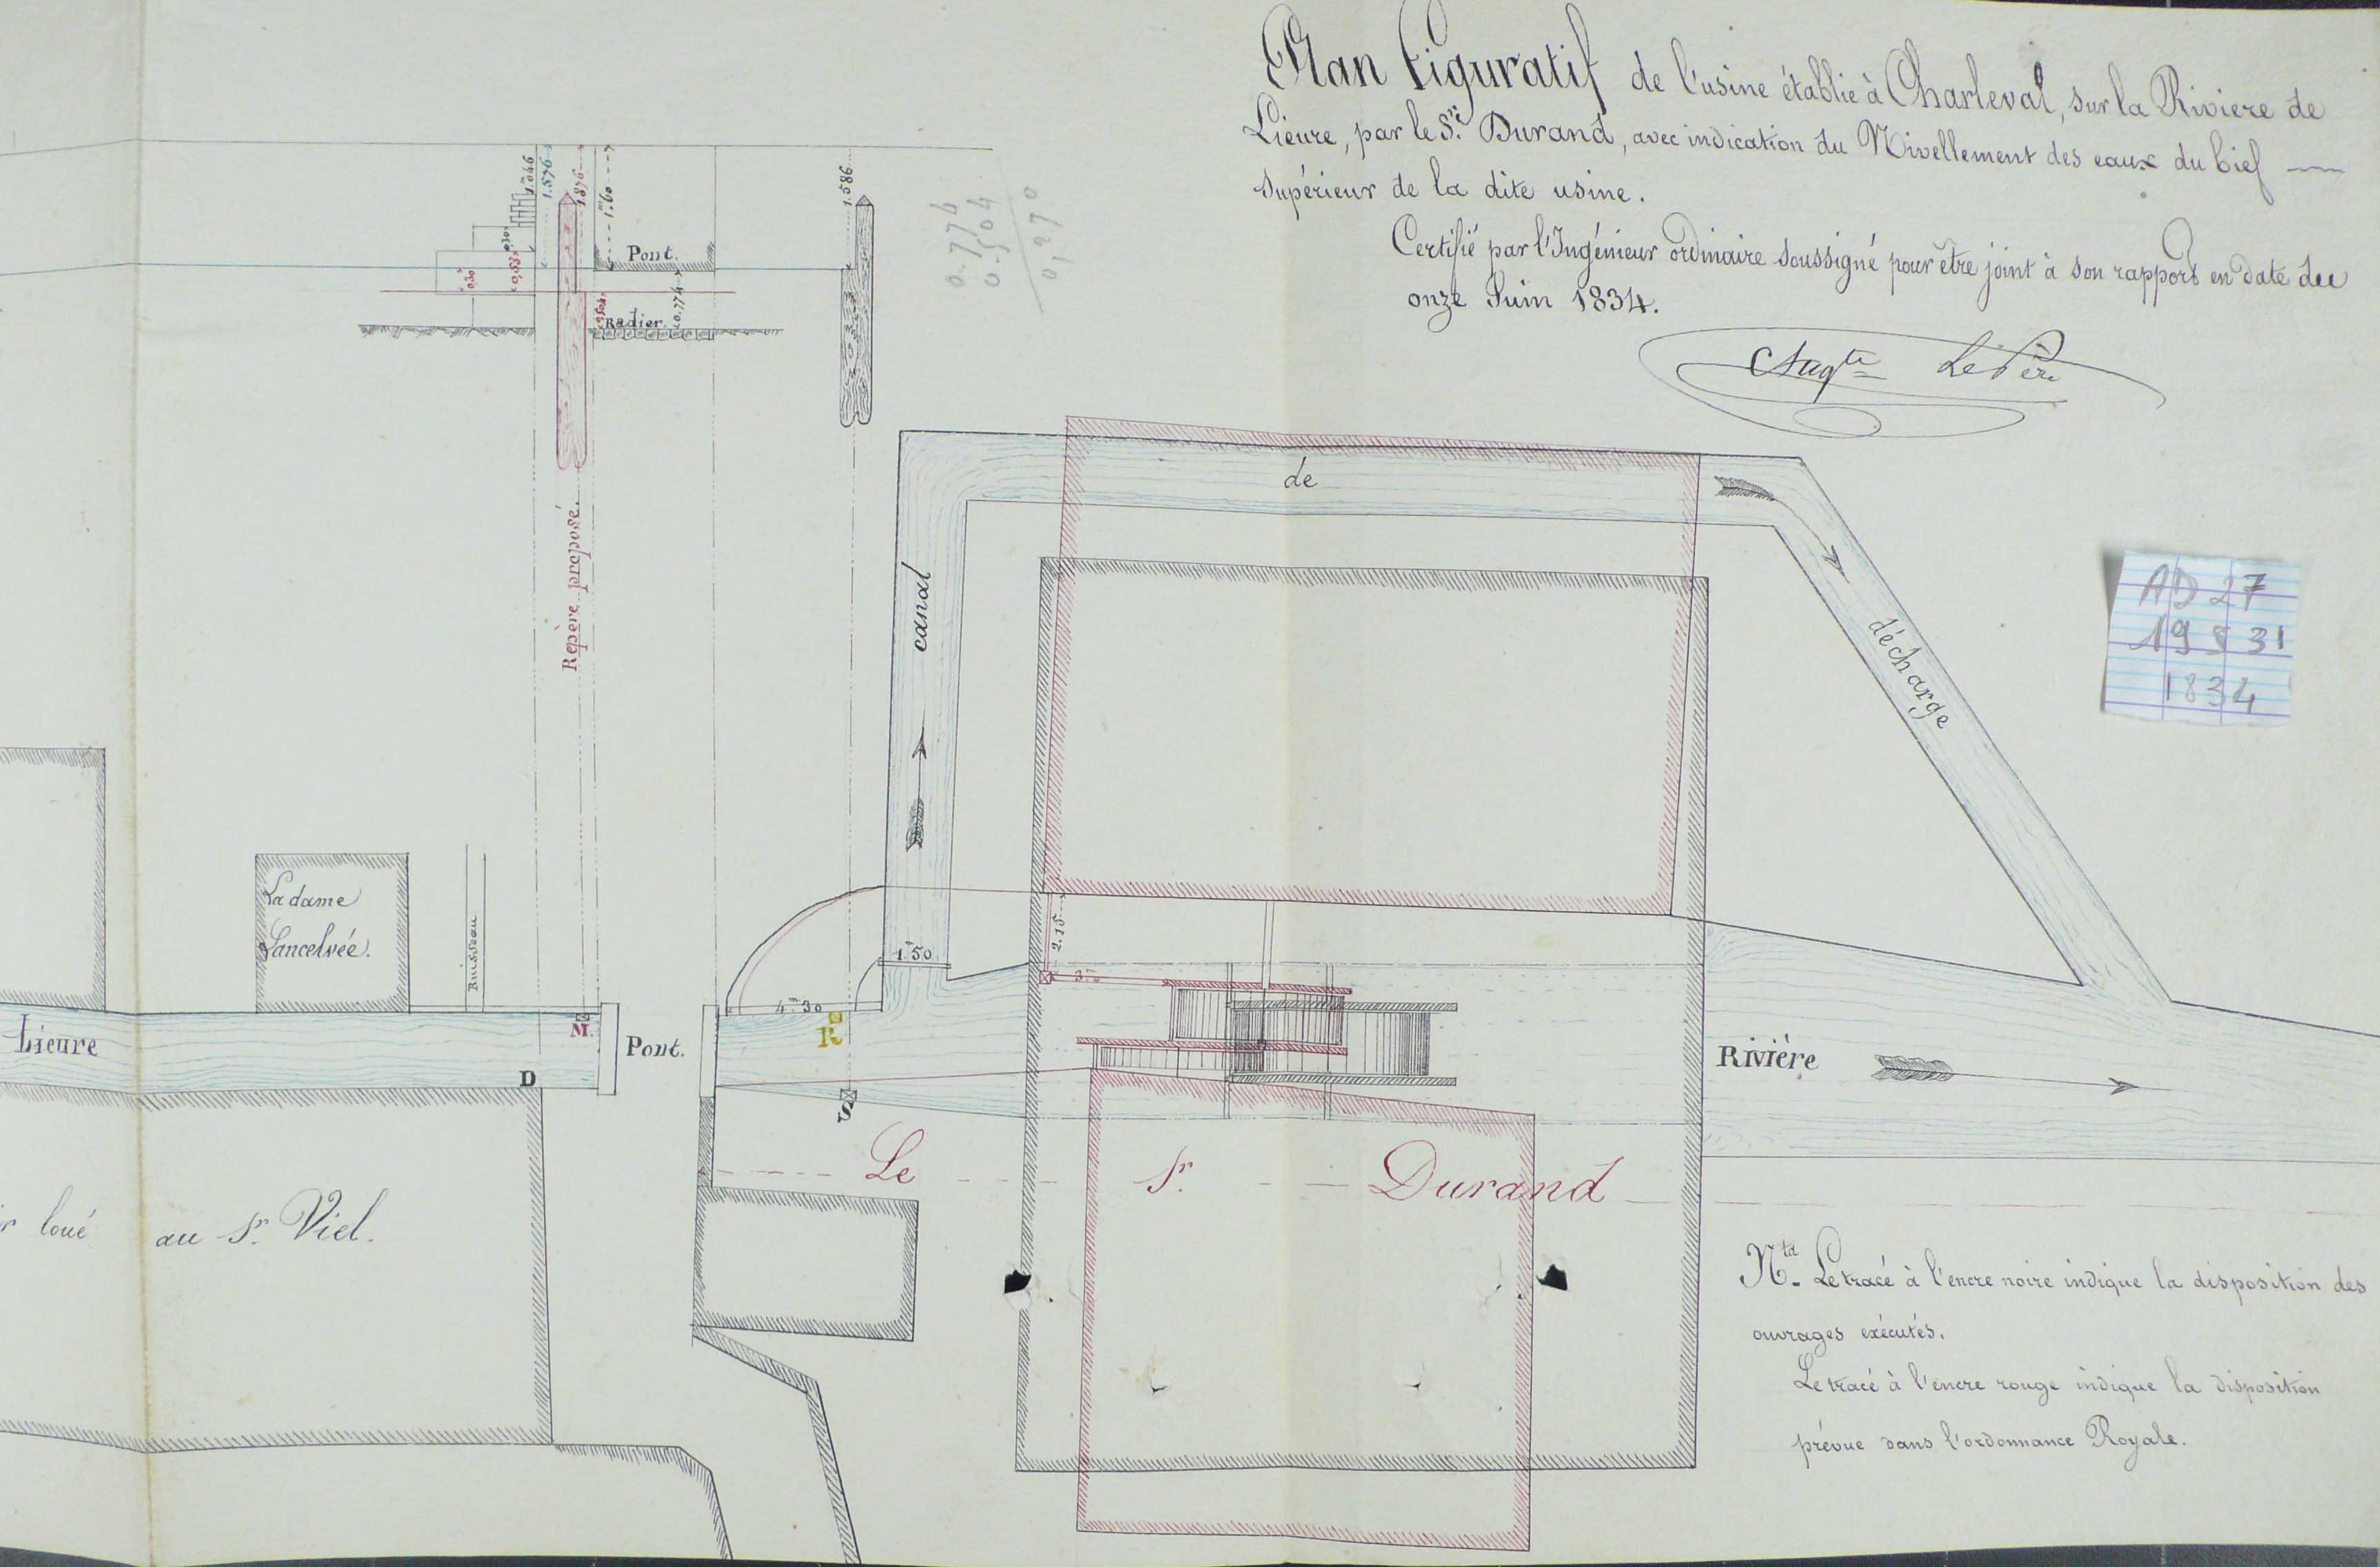 Plan Figuratif de l'usine établie à Charleval, sur la Riviere de
Lieure, par le Sr. Durand, avec indication du Nivellement des eaux du bief
supérieur de la dite usine.
Certifié par l'Ingénieur ordinaire soussigné pour être joint à son rapport en date du
onze Juin 1834.
Le Père
1.046
1.576
1.876
1.m60
1.586
0.774
0.504
0,270
Pont.
030
0,33
030
0.504
Radier
0.774
Repère proposé.
de
canal
décharge
AD 27
19 S 31
1834
La dame
Lancelvée.
Ruisseau
1.m50
2.15
3.m
4.m30
R
M.
Lieure
Pont.
D
S
Rivière
Le Sr. Durand
loué au Sr. Viel.
Nta. Le tracé à l'encre noire indique la disposition des
ouvrages exécutés.
Le tracé à l'encre rouge indique la disposition
prévue dans l'ordonnance Royale.